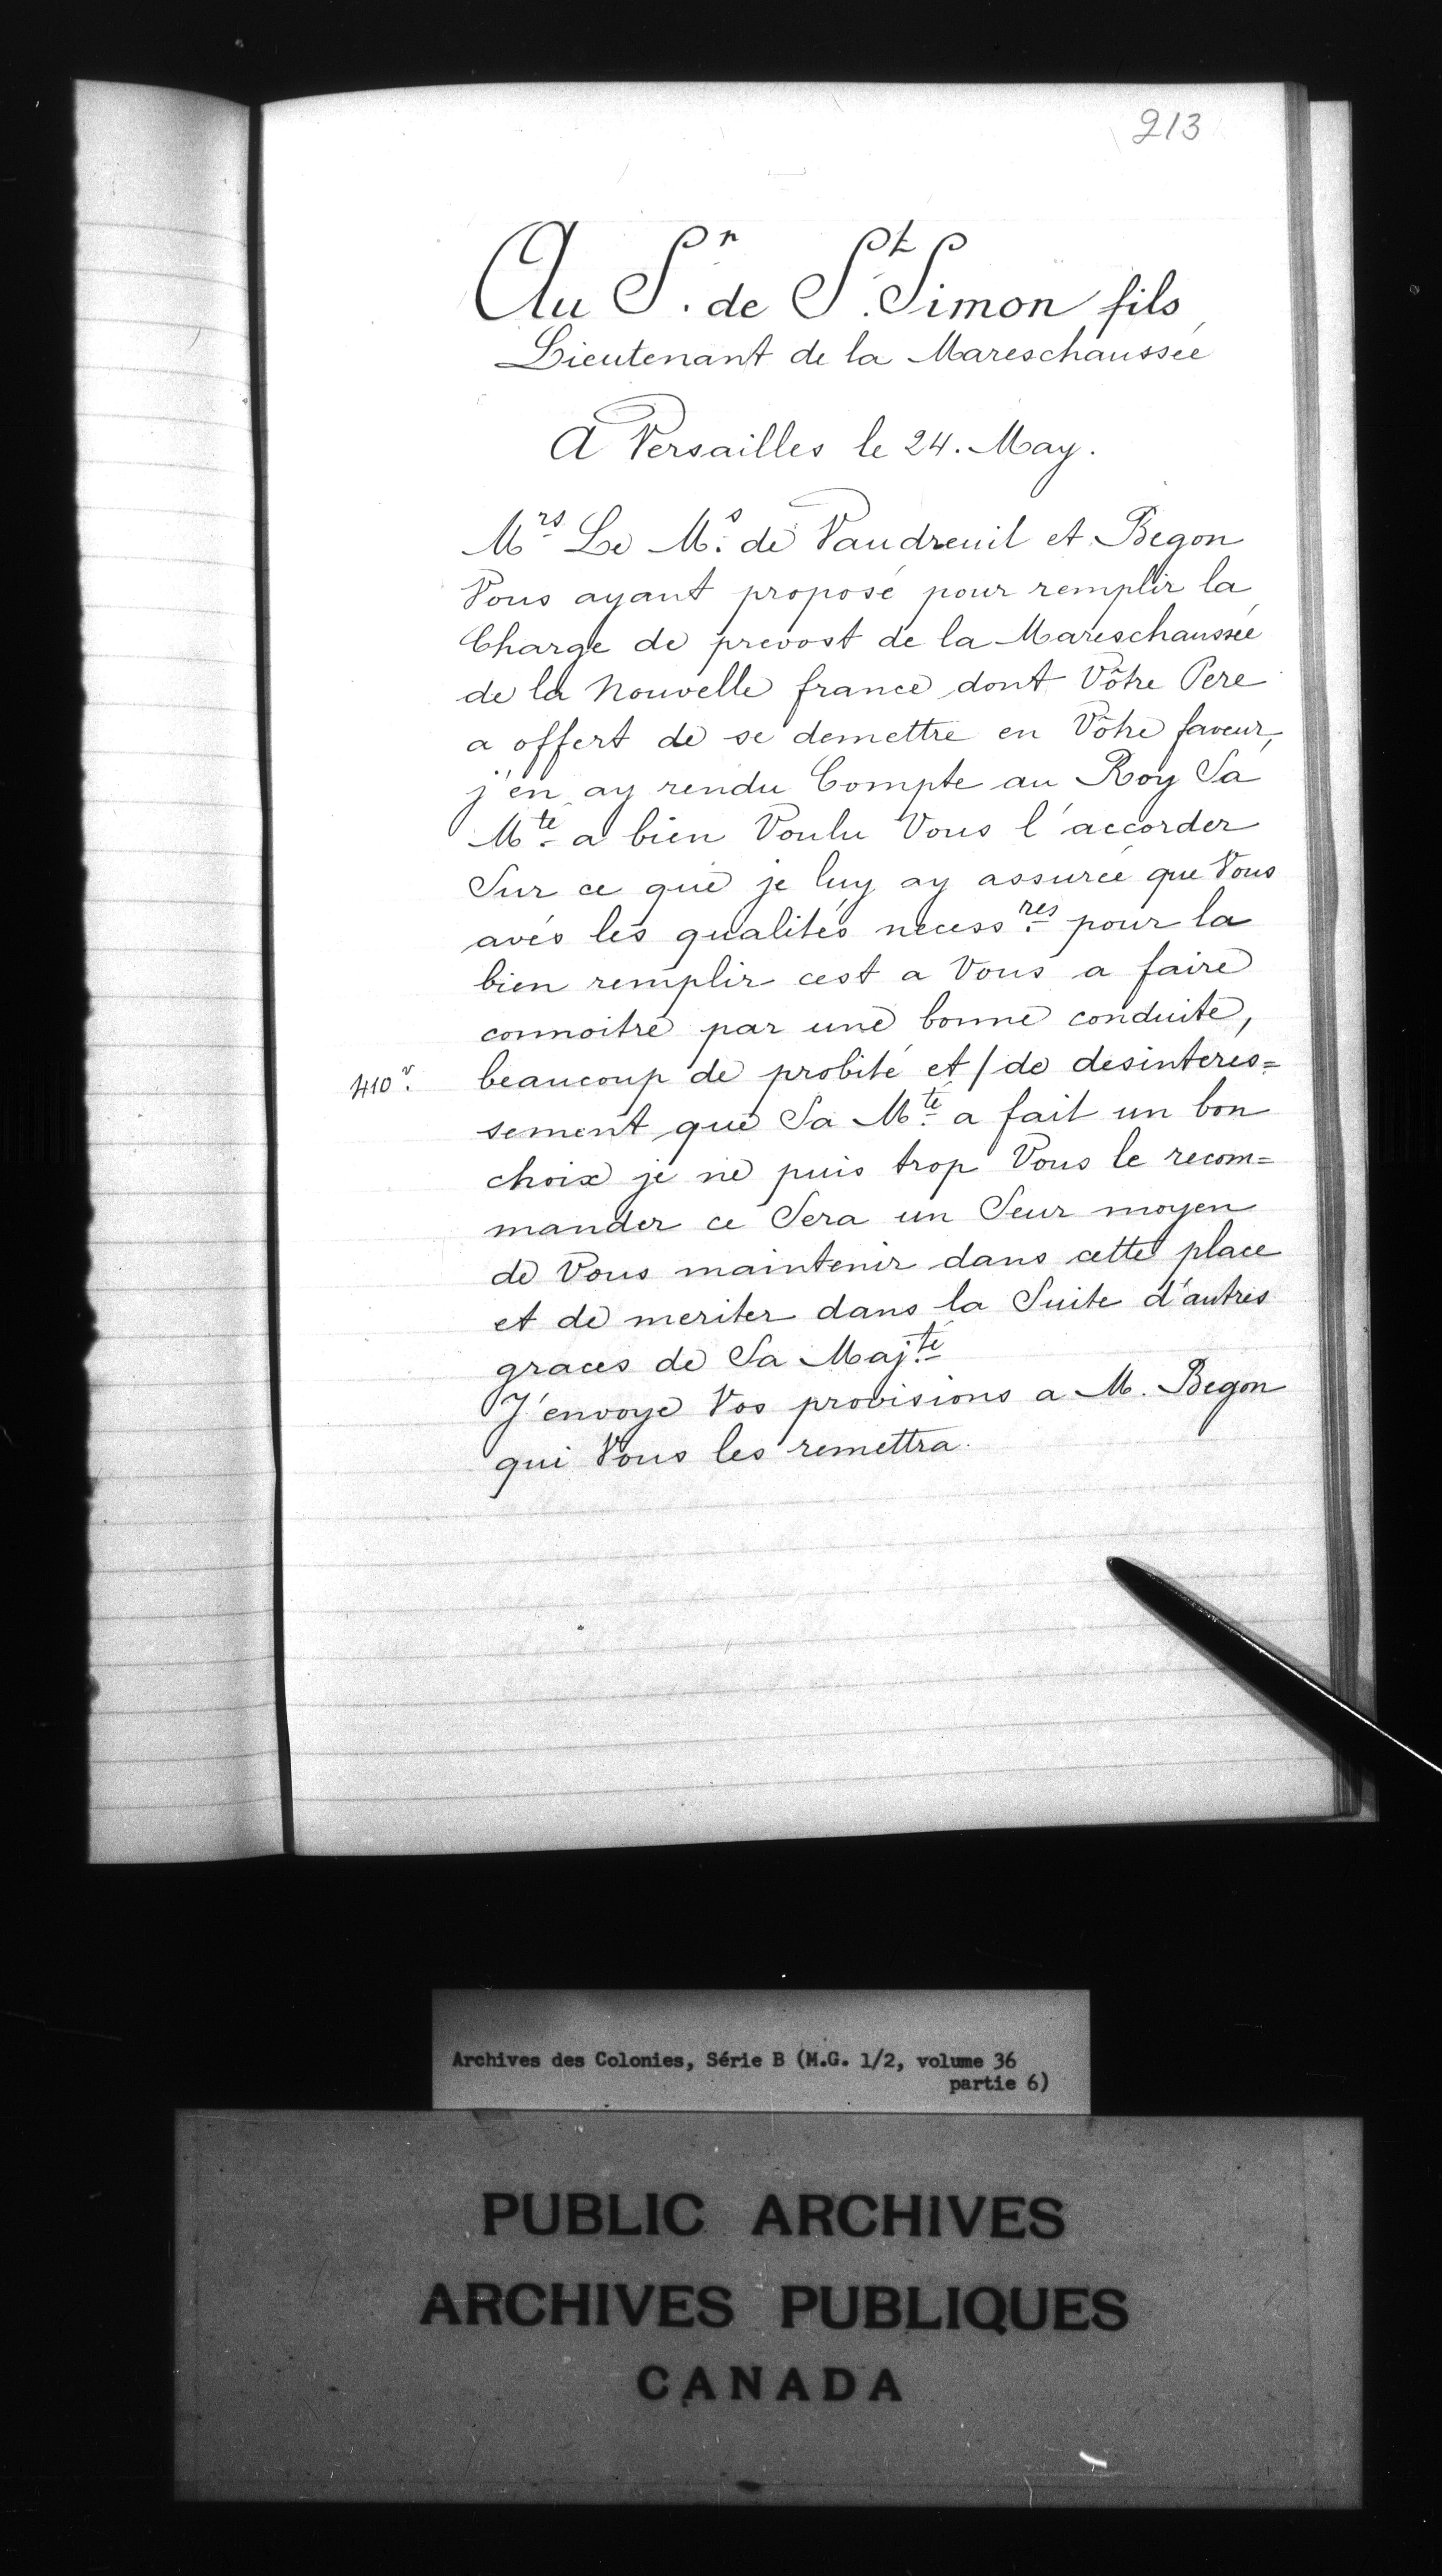 213
Au S.r de S.t Simon fils
Lieutenant de la Mareschaussée
A Versailles le 24. May.
Mrs Le M.s de Vaudreuil et Begon
Vous ayant proposé pour remplir la
Charge de prevost de la Mareschaussée
de la Nouvelle france dont Vôtre Pere
a offert de se demettre en Vôtre faveur,
j'en ay rendu Compte au Roy Sa
M.té a bien Voulu Vous l'accorder
Sur ce que je luy ay assurée que Vous
avés les qualités necess.res pour la
bien remplir cest a Vous a faire
connoitre par une bonne conduite,
410 v. beaucoup de probité et / de desinteres=
sement que Sa M.té a fait un bon
choix je ne puis trop Vous le recom=
mander ce Sera un Seur moyen
de Vous maintenir dans cette place
et de meriter dans la Suite d'autres
graces de Sa Maj.té
J'envoye Vos provisions a M. Begon
qui Vous les remettra.
Archives des Colonies, Série B (M.G. 1/2, volume 36
partie 6)
PUBLIC ARCHIVES
ARCHIVES PUBLIQUES
CANADA